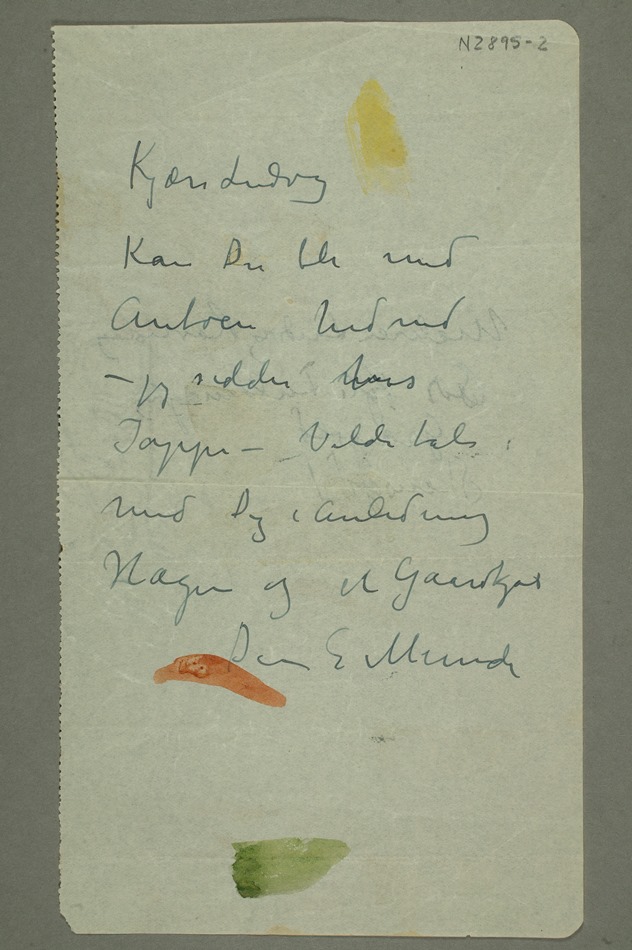 N2895-2
Kjære Ludvig
Kan Du bli med
ned med
– jeg sidder hos
Jappe – Vilde tale
med Dig i anledning
Hægen og et Gaardkjøb
Din E Munch